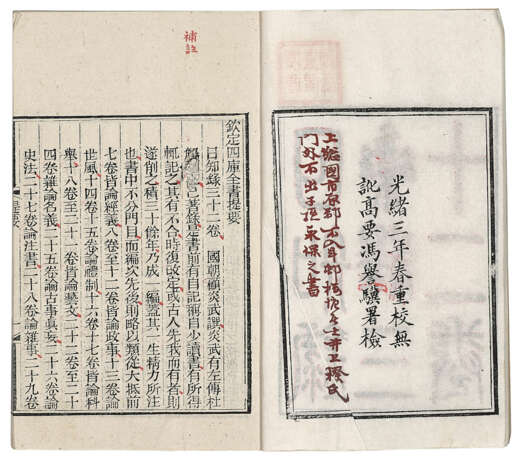 光緒三年春重校無
訛高要馮譽驥署檢
上總國市原郡
門外不出子孫永保之書
補註
欽定四庫全書提要
日知錄三十二卷 國朝顧炎武譔炎武有左傳杜
解已著錄是書前有自記稱自少讀書有所得
輒記之其有不合時復改定或古人先我而有者則
遂削之積三十餘年乃成一編蓋其一生精力所注
也書中不分門目而編次先後則略以類從大抵前
七卷皆論經義八卷至十二卷皆論政事十三卷論
世風十四卷十五卷論禮制十六卷十七卷皆論科
舉十八卷至二十一卷皆論藝文二十二卷至二十
四卷雜論名義二十五卷論古事真妄二十六卷論
史法二十七卷論注書二十八卷論雜事二十九卷